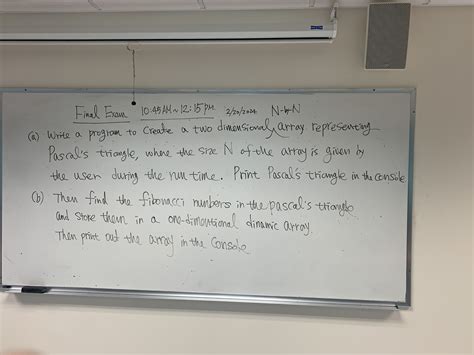 Final Exam 10:45AM ~ 12:15PM 2/20/2024 N-by-N
(a) Write a program to create a two dimensional array representing
Pascal's triangle, where the size N of the array is given by
the user during the run time. Print Pascal's triangle in the console
(b) Then find the fibonacci numbers in the pascal's triangle
and store them in a one-dimentional dinamic array.
Then print out the array in the console